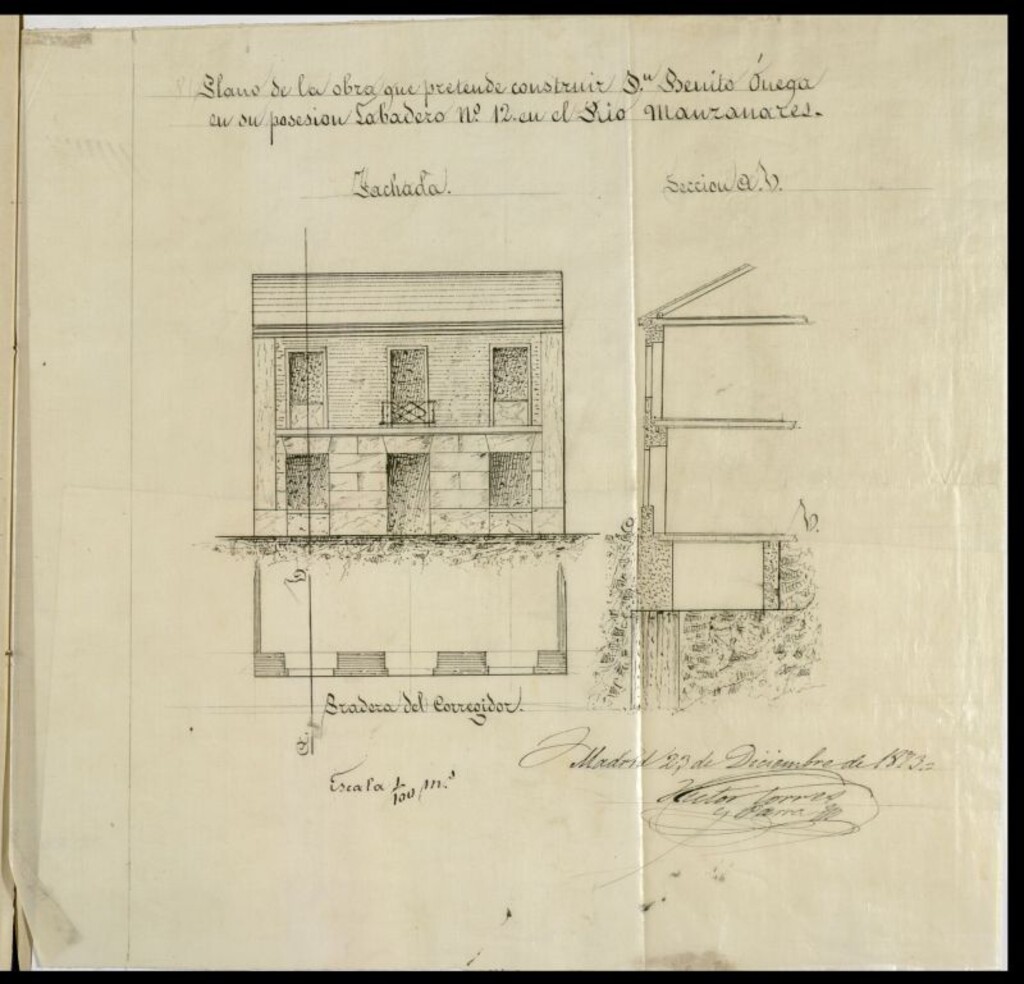 Plano de la obra que pretende construir D.ⁿ Benito Ónega
en su posesion Labadero Nº 12 en el Rio Manzanares.
Fachada.
Seccion a.b.
b.
a
b
Pradera del Corregidor.
a
Escala 1/100 m.ˢ
Madrid 23 de Diciembre de 1873.
Torres
y Parra